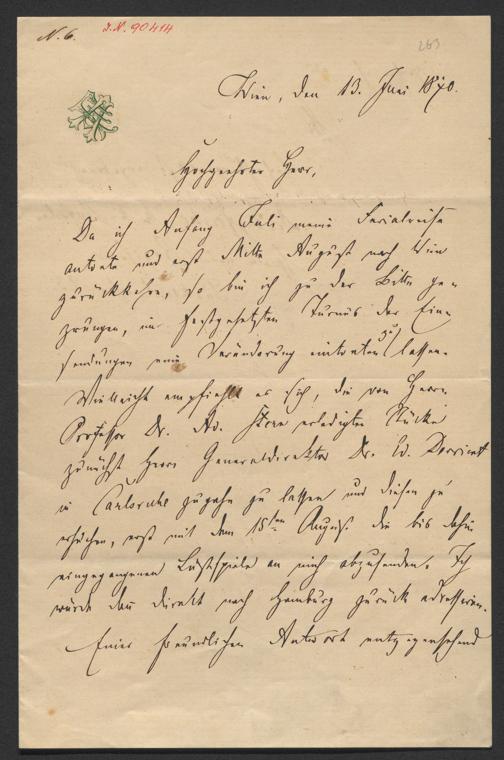 N. 6.
J.N. 90414
263
Wien, den 13. Juni 1870.
Hochgeehrter Herr,
Da ich Anfang Juli meine Ferialreise
antrete und erst Mitte August nach Wien
zurückkehre, so bin ich zu der Bitte ge-
zwungen, im festgesetzten Turnus der Ein-
sendungen eine Veränderung eintreten zu lassen.
Vielleicht empfiehlt es sich, die von Herrn
Professor Dr. Ad. Stern erledigten Stücke
zunächst Herrn Generaldirektor Dr. Ed. Devrient
in Carlsruhe zugehn zu lassen und diesen zu
ersuchen, erst mit dem 15ten August die bis dahin
eingegangenen Lustspiele an mich abzusenden. Ich
würde dann direkt nach Hamburg zurück adressiren.
Einer freundlichen Antwort entgegensehend